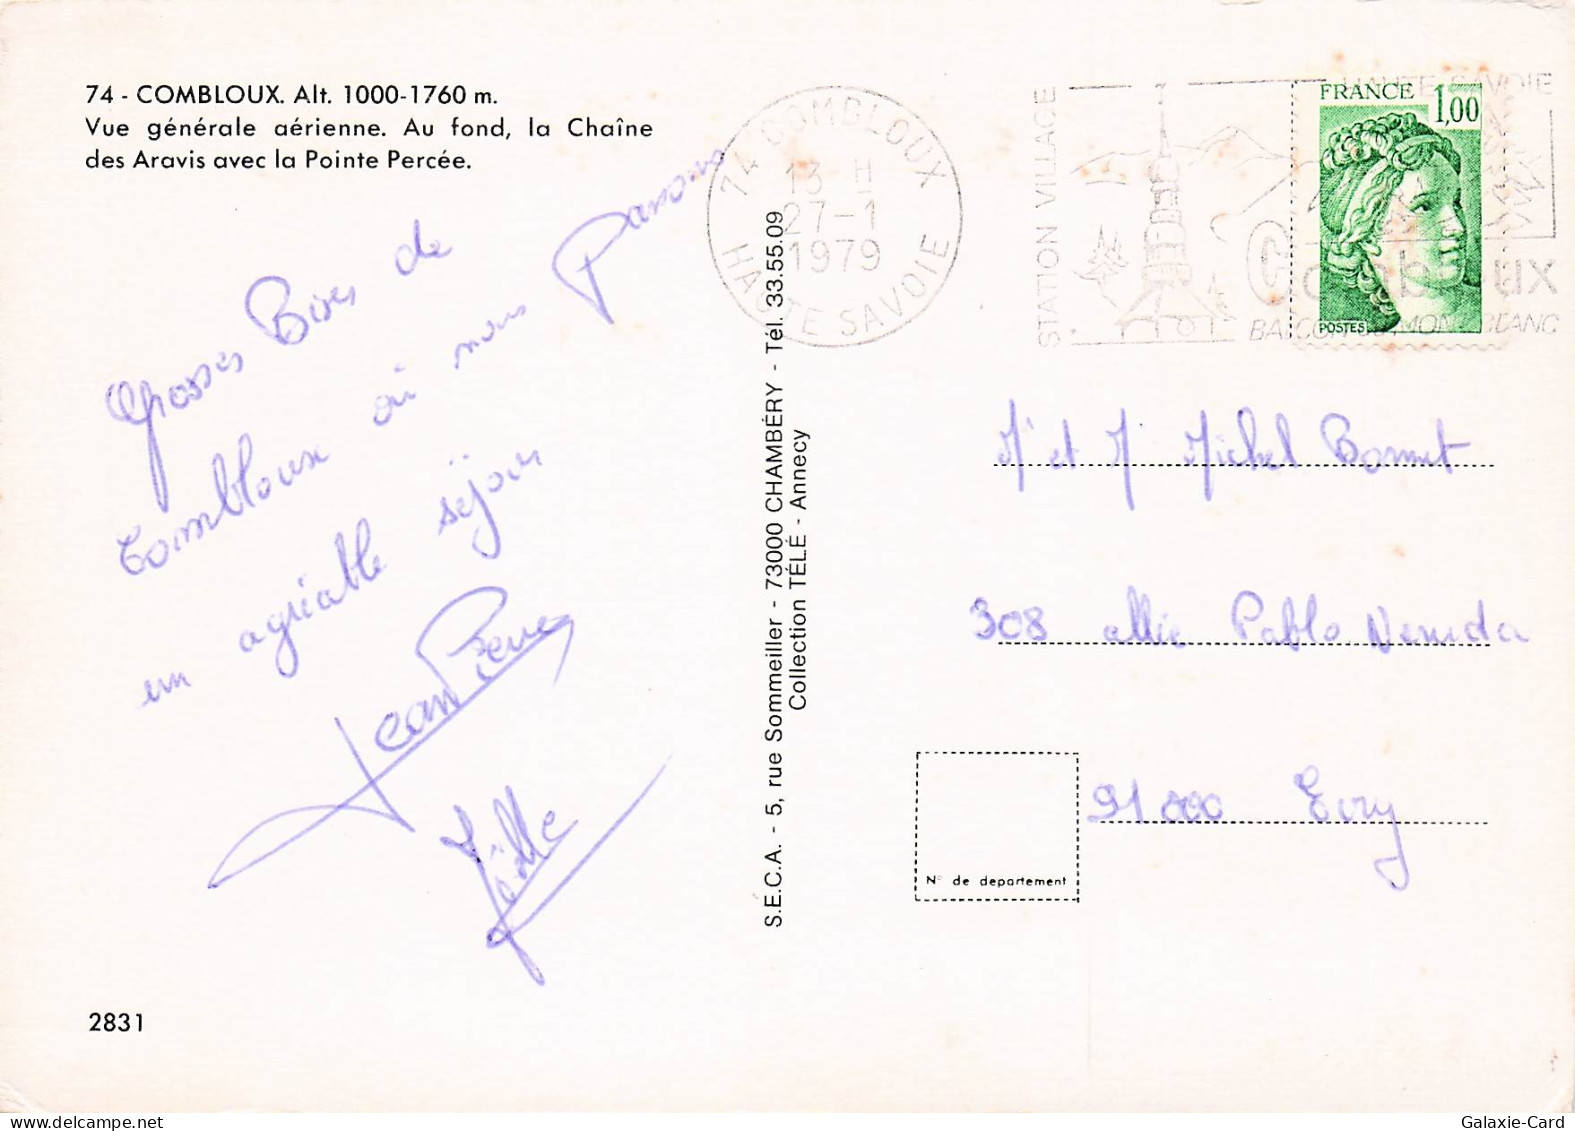 74 - COMBLOUX. Alt. 1000-1760 m.
Vue générale aérienne. Au fond, la Chaîne
des Aravis avec la Pointe Percée.
Grosses Bises de
Combloux où nous Passons
un agréable séjour
Jean Pierre
Joëlle
2831
S.E.C.A. - 5, rue Sommeiller - 73000 CHAMBÉRY - Tél. 33.55.09
Collection TÉLÉ - Annecy
74 COMBLOUX
13 H
27-1
1979
HAUTE SAVOIE
STATION VILLAGE
HAUTE-SAVOIE
Combloux
BALCON DU MONT-BLANC
FRANCE 1,00
POSTES
M' et M Michel Bonnet
308 allée Pablo Neruda
91000 Evry
N° de departement
Galaxie-Card